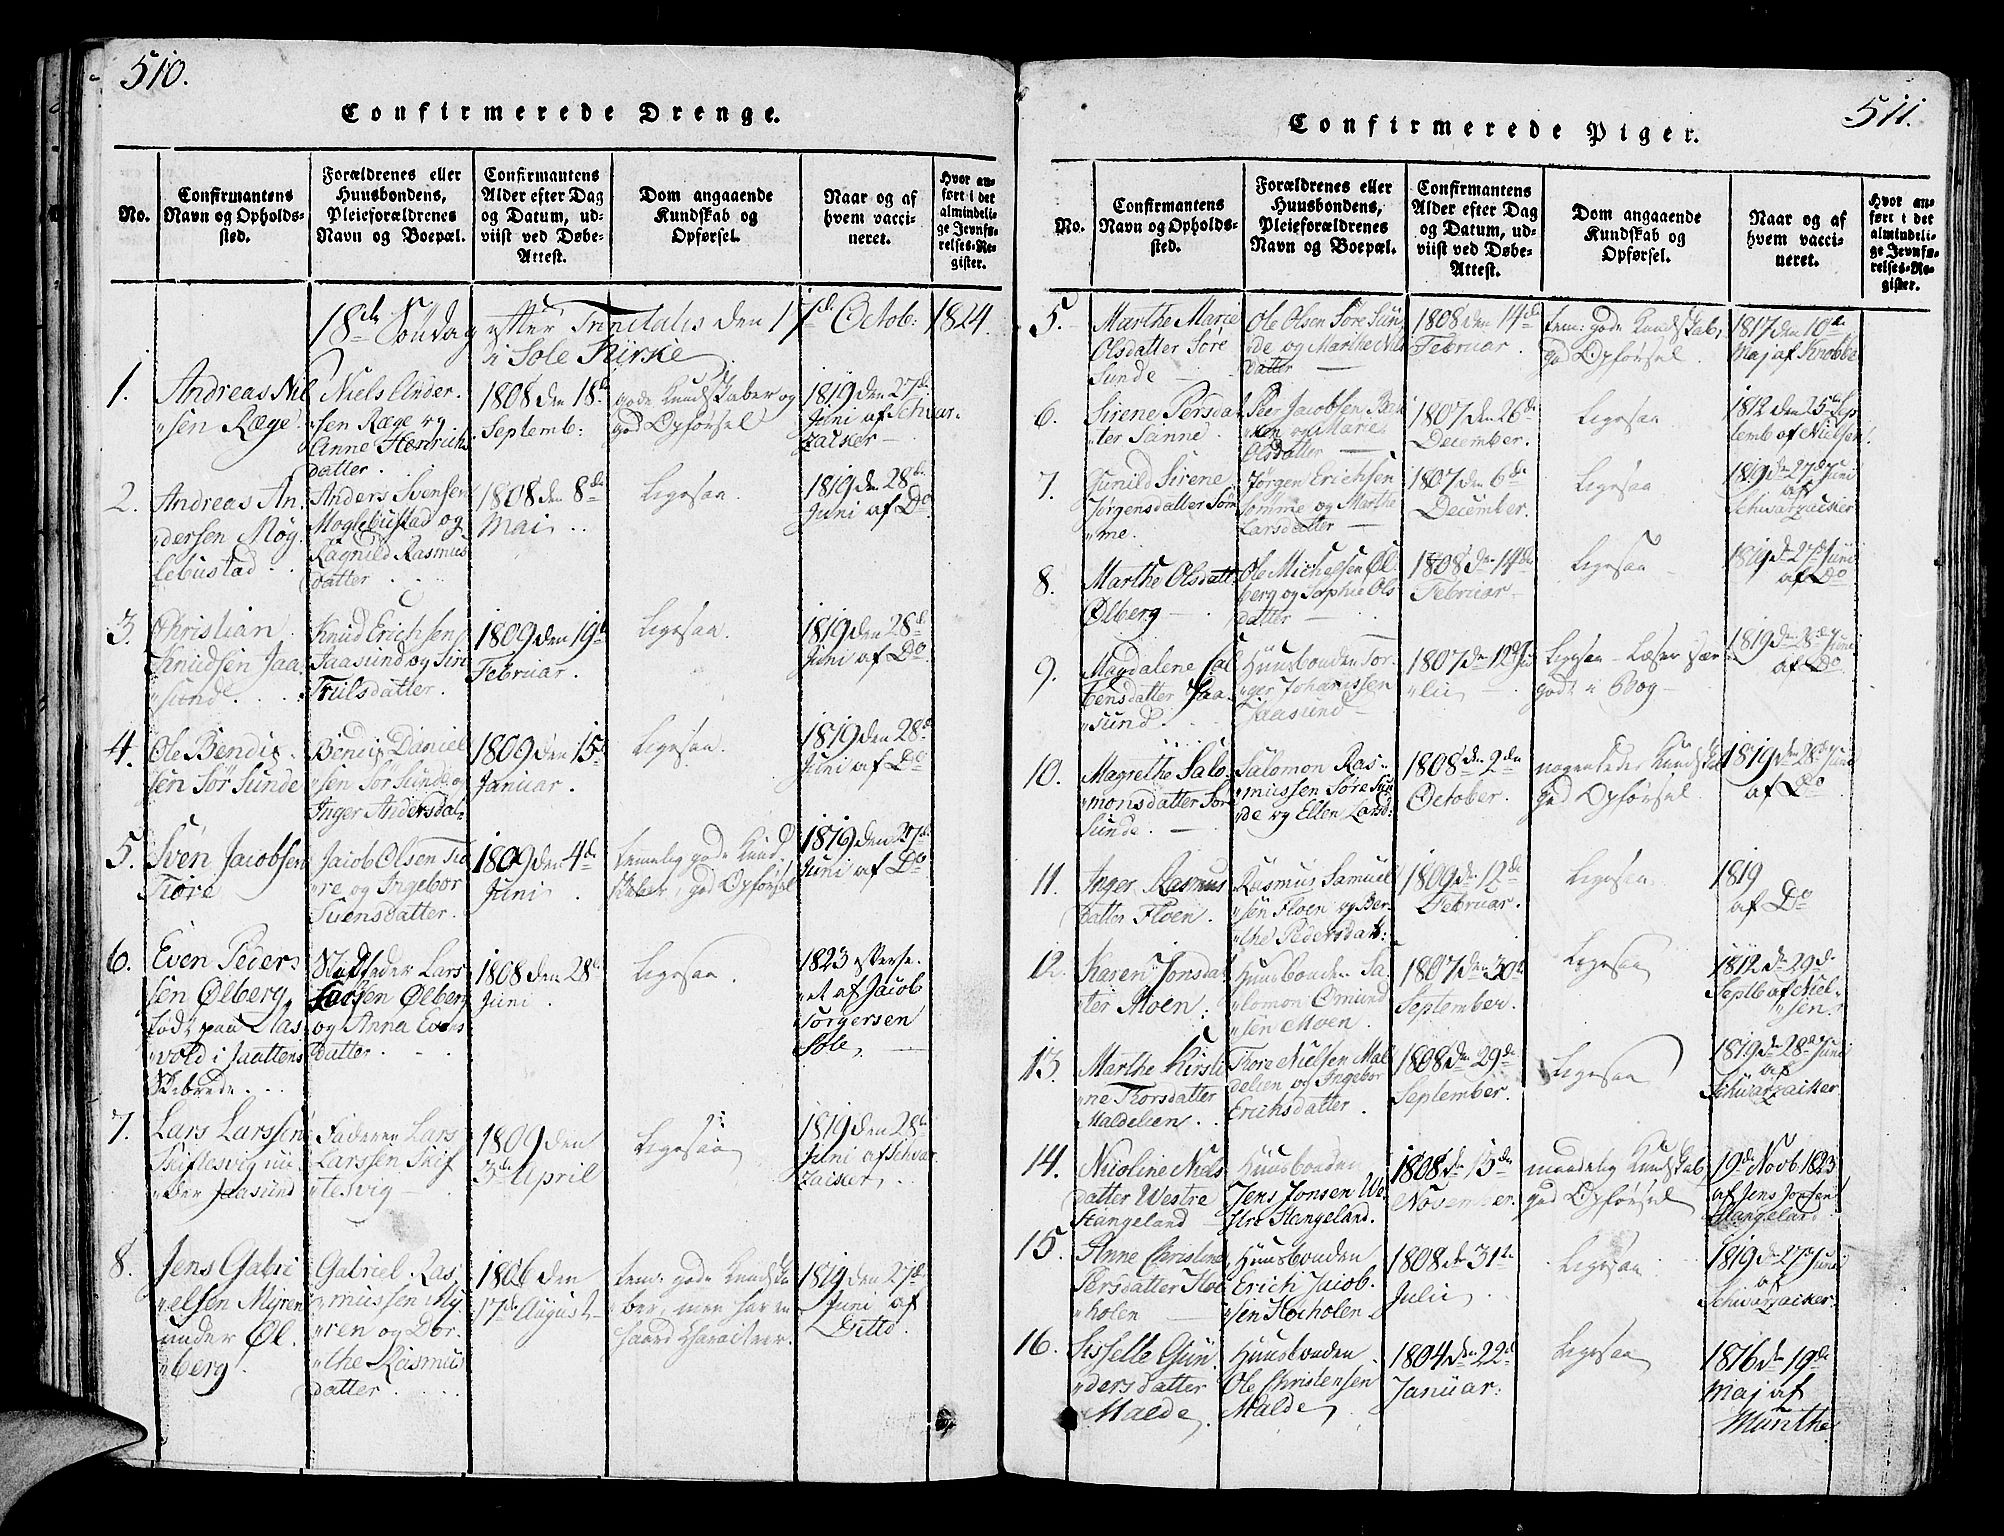 510.
Confirmerede Drenge.
No.
Confirmantens
Navn og Opholds-
sted.
Forældrenes eller
Huusbondens,
Pleieforældrenes
Navn og Boepæl.
Confirmantens
Alder efter Dag
og Datum, ud-
viist ved Døbe-
Attest.
Dom angaaende
Kundskab og
Opførsel.
Naar og af
hvem vacci-
neret.
Hvor an-
ført i det
almindeli-
ge Jevnfø-
relses-Re-
gister.
18de Söndag efter Trinitatis den 17de Octob: 1824.
i Sole Kirke
1.
Andreas Niel
sen Ræge.
Niels Ander.
sen Ræge og
Anne Henrichs
datter.
1808 den 18de
Septemb:
gode Kundskaber og
god Opførsel
1819 den 27de
Juni af Schvar.
zaiker
2.
Andreas An,
dersen Mog,
lebustad.
Anders Svensen
Moglebustad og
Ragnild Rasmus
datter.
1808 den 8de
Mai
Ligesaa.
1819 den 28de
Juni af Do
3.
Christian
Knudsen Jaa,
sund.
Knud Erichsen
Jaasund og Siri
Trulsdatter.
1809 den 19de
Februar.
Ligesaa.
1819 den 28de
Juni af Do
4.
Ole Bendix.
sen Sør Sunde
Bendix Daniel
sen Sør Sunde og
Inger Andersdat.
1809 den 15de
Januar.
Ligesaa.
1819 den 28de
Juni af Do
5.
Sven Jacobsen
Tiøre
Jacob Olsen Tiø
re og Ingebor
Svensdatter.
1809 den 4de
Juni
temelig gode Kund
skaber, god Opførsel
1819 den 27de
Juni af Do
6.
Even Peder-
sen Ølberg,
født paa Aas
vold i Jaattens
Skibrede.
Stedfader Lars
Larsen Ølberg
og Anna Evens
datter.
1808 den 28de
Juni.
Ligesaa.
1823
af Jacob
Torgersen
Sole,
7.
Lars Larssen
Skiftesvig un
der Jaasund
Faderen Lars
Larssen Skif
tesvig
1809 den
3de April
Ligesaa
1819 den 28de
Juni af Schvar
zaiker,
8.
Jens Gabri
elsen Myren
under Øl.
berg
Gabriel Ras
mussen My
ren og Dor.
the Rasmus
datter.
1806 den
17de August
tem: gode Kundska
ber, men har en
haard Charakteer.
1819 den 27de
Juni af
Ditto.
511.
Confirmerede Piger.
No.
Confirmantens
Navn og Opholds-
sted.
Forældrenes eller
Huusbondens,
Pleieforældrenes
Navn og Boepæl.
Confirmantens
Alder efter Dag
og Datum, ud-
viist ved Døbe-
Attest.
Dom angaaende
Kundskab og
Opførsel.
Naar og af
hvem vacci-
neret.
Hvor an-
ført i det
almindeli-
ge Jevnfø-
relses-Re-
gister.
5.
Marthe Marie
Olsdatter Søre
Sunde
Ole Olsen Søre Sun,
de og Marthe Niels
datter
1808 den 14de
Februar.
tem: gode Kundskab,
god Opførsel
1817 den 10de
Maj af Knobbe
6.
Sirene Persdat
ter Sanne.
Peer Jacobsen
og Marie
Olsdatter
1807 den 26de
December.
Ligesaa
1812 den 25de Sep
temb af Nielsen.
7.
Gunild Sirene
Jørgensdatter Søm
me.
Jørgen Erichsen
Sømme og Marthe
Larsdatter
1807 den 6de
December.
Ligesaa
1819 den 27de Juni
af
Schvarzaiker
8.
Marthe Olsdatt
Ølberg
Ole Michelsen Øl
berg og Sophie Ols
datter
1808 den 14de
Februar
Ligesaa
1819 den 27de Juni
af Do
9.
Magdalene
Jaa
sund.
Huusbonden Tor.
ger Johannssen
Jaasund
1807 den 12de Ju
lii
Ligesaa - Læser især
godt i Bog
1819 den 28de Juni
af Do
10.
Magrethe Salo,
monsdatter Søre
Sunde.
Salomon Ras-
mussen Søre Sun
de og Ellen Larsd:
1808 den 2den
October.
nogenledes Kundskab
god Opførsel
1819 den 28de Juni
af Do
11.
Inger Rasmus
datter Floen.
Rasmus Samuel
sen Floen og Ber
the Pedersdat:
1809 den 12de
Februar.
Ligesaa
1819
af Do
12.
Karen Jonsdat
ter Moen.
Huusbonden Sa.
lomon Ømund
sen Moen.
1807 den 30te
September.
Ligesaa
1812 den 29de
Septb af Niel-
sen.
13.
Marthe Kirsti
ne Thorsdatter
Maldelien.
Thore Nielsen Mal
delien og Ingebor
Erichsdatter.
1808 den 29de
September.
Ligesaa
1819 den 28de Juni
af
Schwarzaiker
14.
Nicoline Niels
datter Westre
Stangeland
Huusbonden
Jens Jonsen We,
stre Stangeland.
1808 den 13de
November.
maadelig Kundskab,
god Opførsel
19de Novb 1823
af Jens Jonsen
Stangeland
15.
Anne Christine
Persdatter Stoc
kolen
Huusbonden
Erich Jacob.
sen Stocholen
1808 den 31te
Julii
Ligesaa
1819 den 27de Juni
af
Schivarzaiker.
16.
Sisselle Gun,
dersdatter
Malde.
Huusbonden
Ole Christensen
Malde,
1804 den 22de
Januar:
Ligesaa
1816 den 19de
Maj af
Munthe.